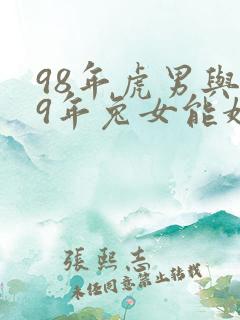 98年虎男與
9年兔女能
張熙志
未经同意禁止转载